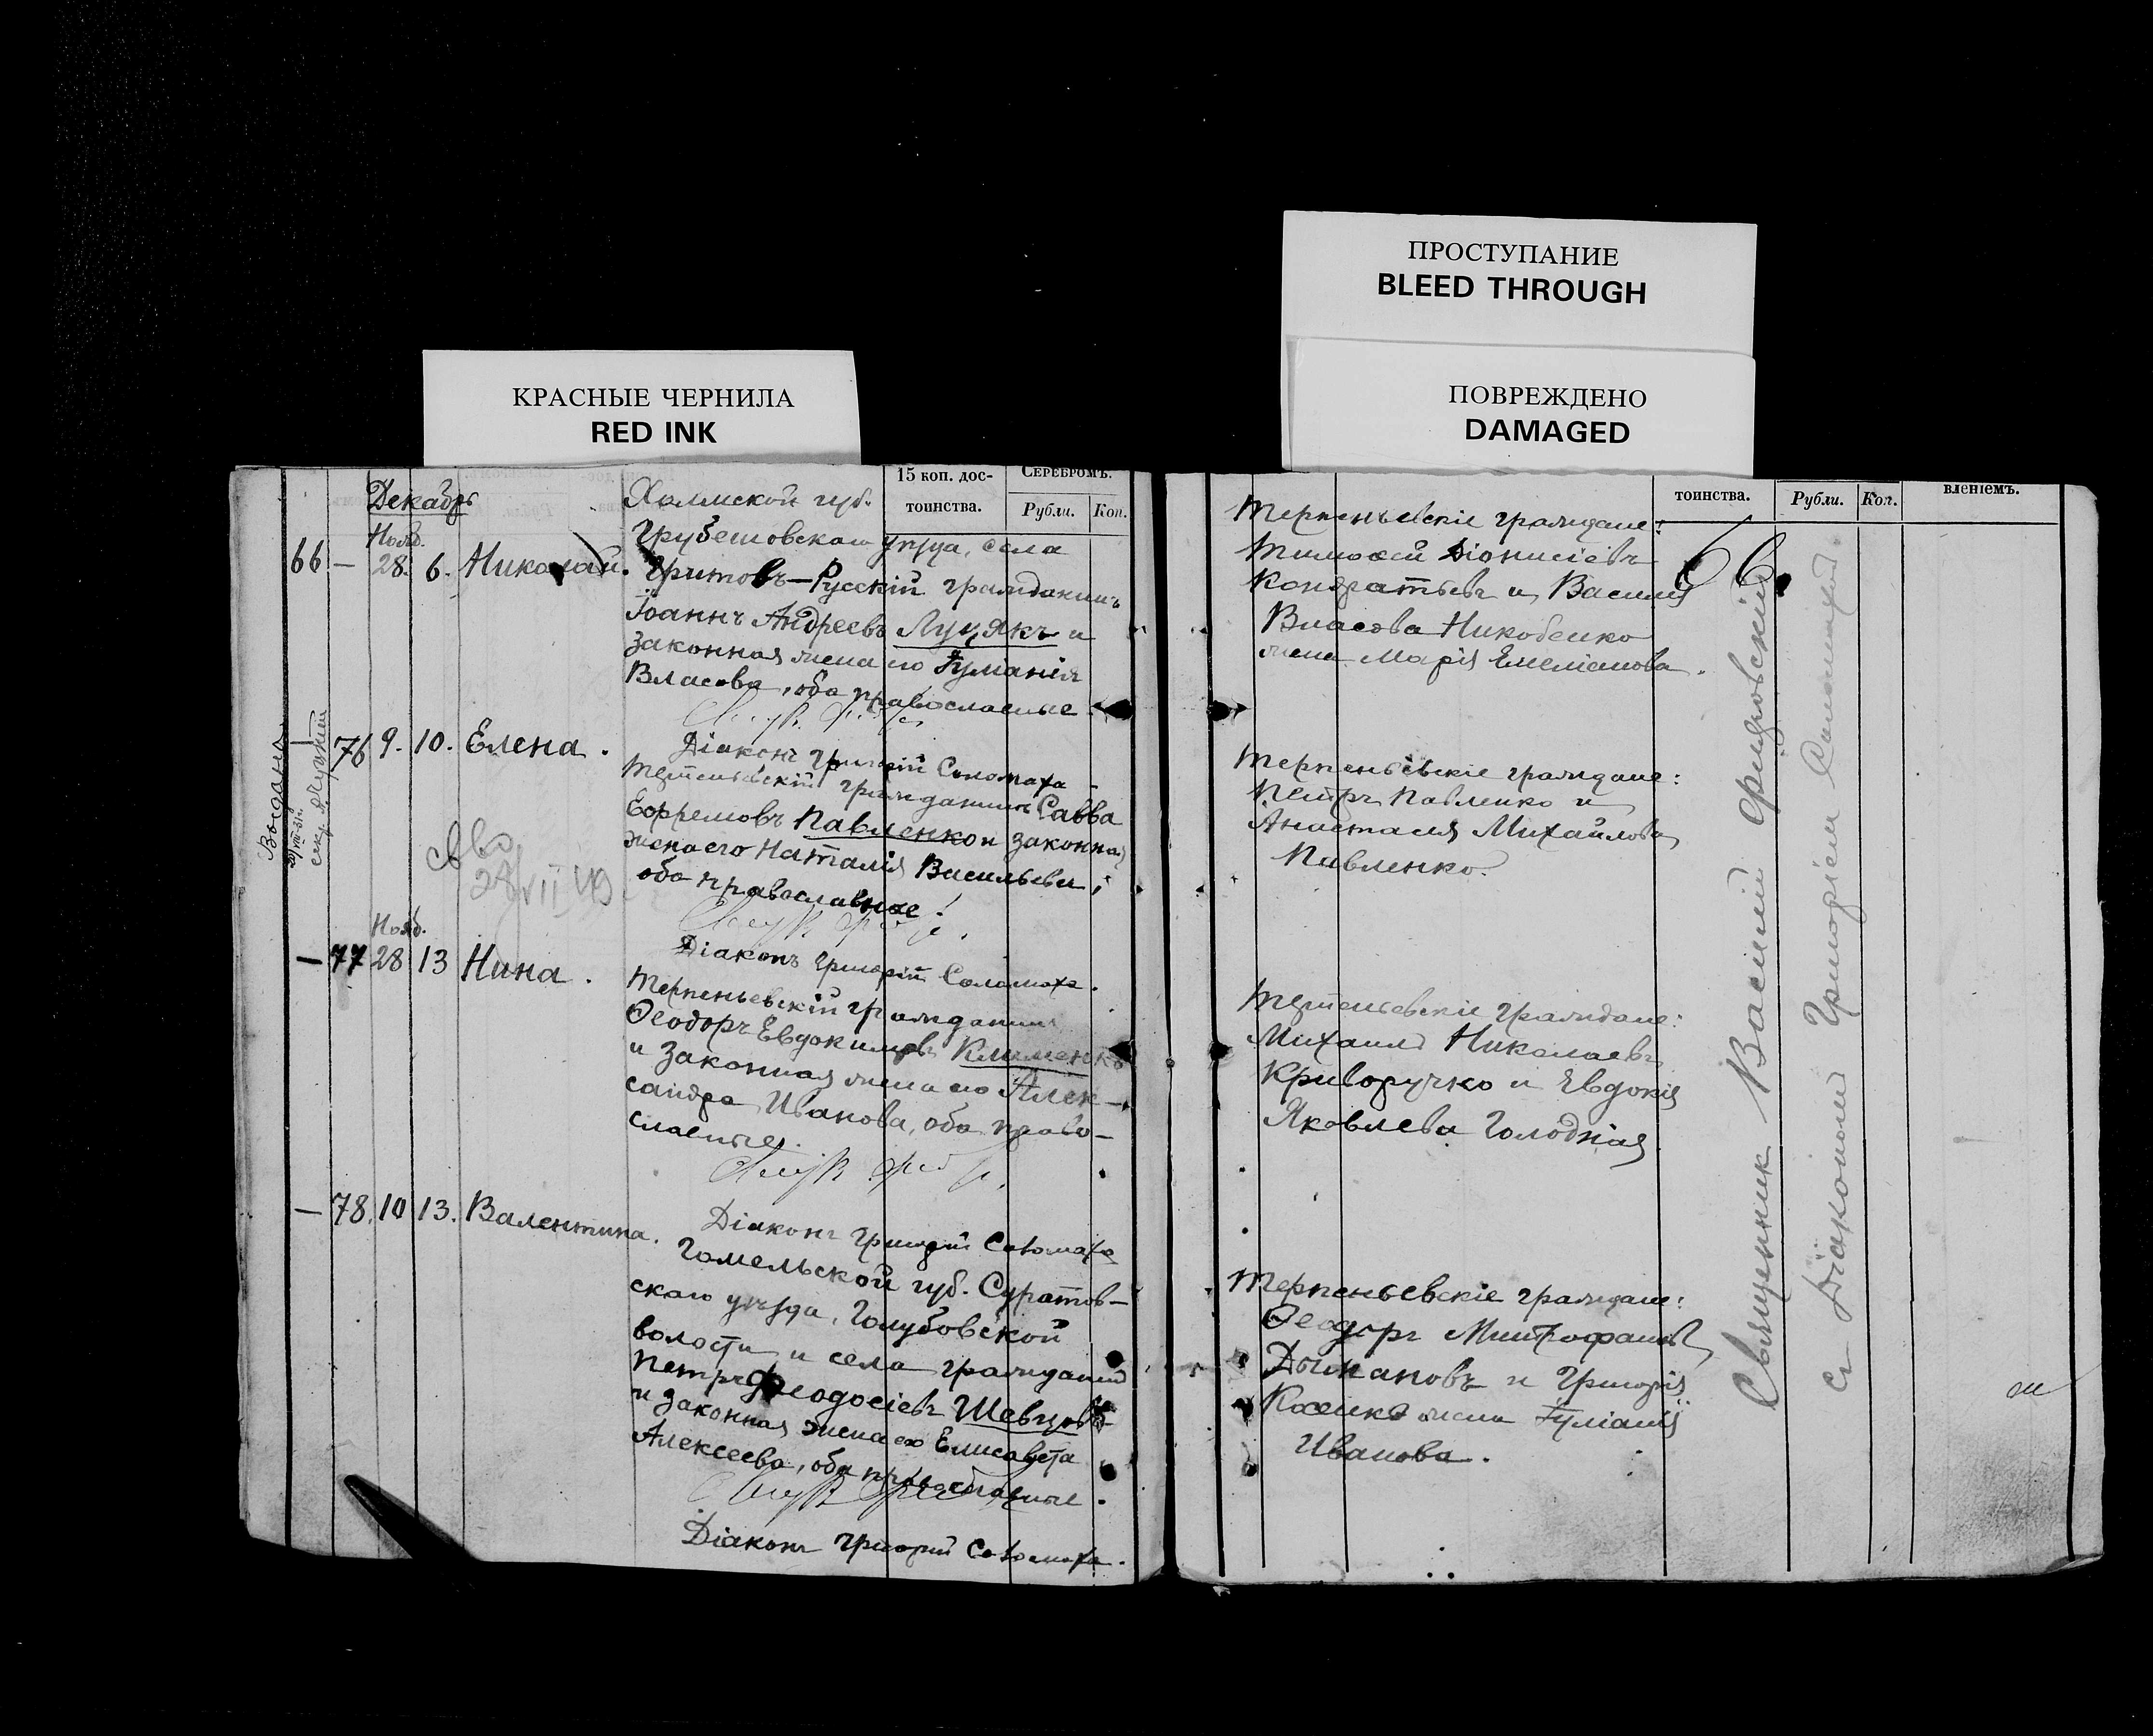 ПРОСТУПАНИЕ
BLEED THROUGH
ПОВРЕЖДЕНО
DAMAGED
КРАСНЫЕ ЧЕРНИЛА
RED INK
15 коп. дос-
тоинства.
Серебромъ.
Рубли. Коп.
Декабрь
Холмской губ.
Нояб.
Грубешовскаго уѣзда, села
66 — 28. 6. Николай.
Русскій гражданинъ
Іоаннъ Андреевъ Луцякъ и
законная жена его
Власова, оба православные
Діаконъ Григорій Соломаха
— 76 9. 10. Елена.
гражданинъ Савва
Ефремовъ Павленко и законная
жена его Наталія Васильева,
оба православные.
Діаконъ Григорій Соломаха.
Нояб.
— 77 28 13 Нина.
Терпеньевскій гражданинъ
Ѳеодоръ Евдокимовъ Клименко
и законная жена его Алек-
сандра Иванова, оба право-
славные.
Діаконъ Григорій Соломаха
— 78. 10 13. Валентина.
Гомельской губ. Суратов-
скаго уѣзда, Голубовской
волости и села гражданинъ
Петръ Ѳеодосіевъ Шевцовъ
и законная жена его Елисавета
Алексеева, оба православные.
Діаконъ Григорій Соломаха.
Выдана
28/VII 49
тоинства.
Рубли. Коп.
вленіемъ.
Терпеньевскіе граждане:
Тимоѳей Діонисіевъ
Кондратьевъ и Василія
Власова
жена Марія Емеліанова.
66.
Терпеньевскіе граждане:
Петръ Павленко и
Анастасія Михайлова
Павленко.
Терпеньевскіе граждане:
Михаилъ Николаевъ
Криворучко и Евдокія
Яковлева Голодная
Терпеньевскіе граждане:
Ѳеодоръ Митрофановъ
и Григорія
жена Іуліанія
Иванова.
Священник Василий
съ Діакономъ Григоріемъ Соломахой